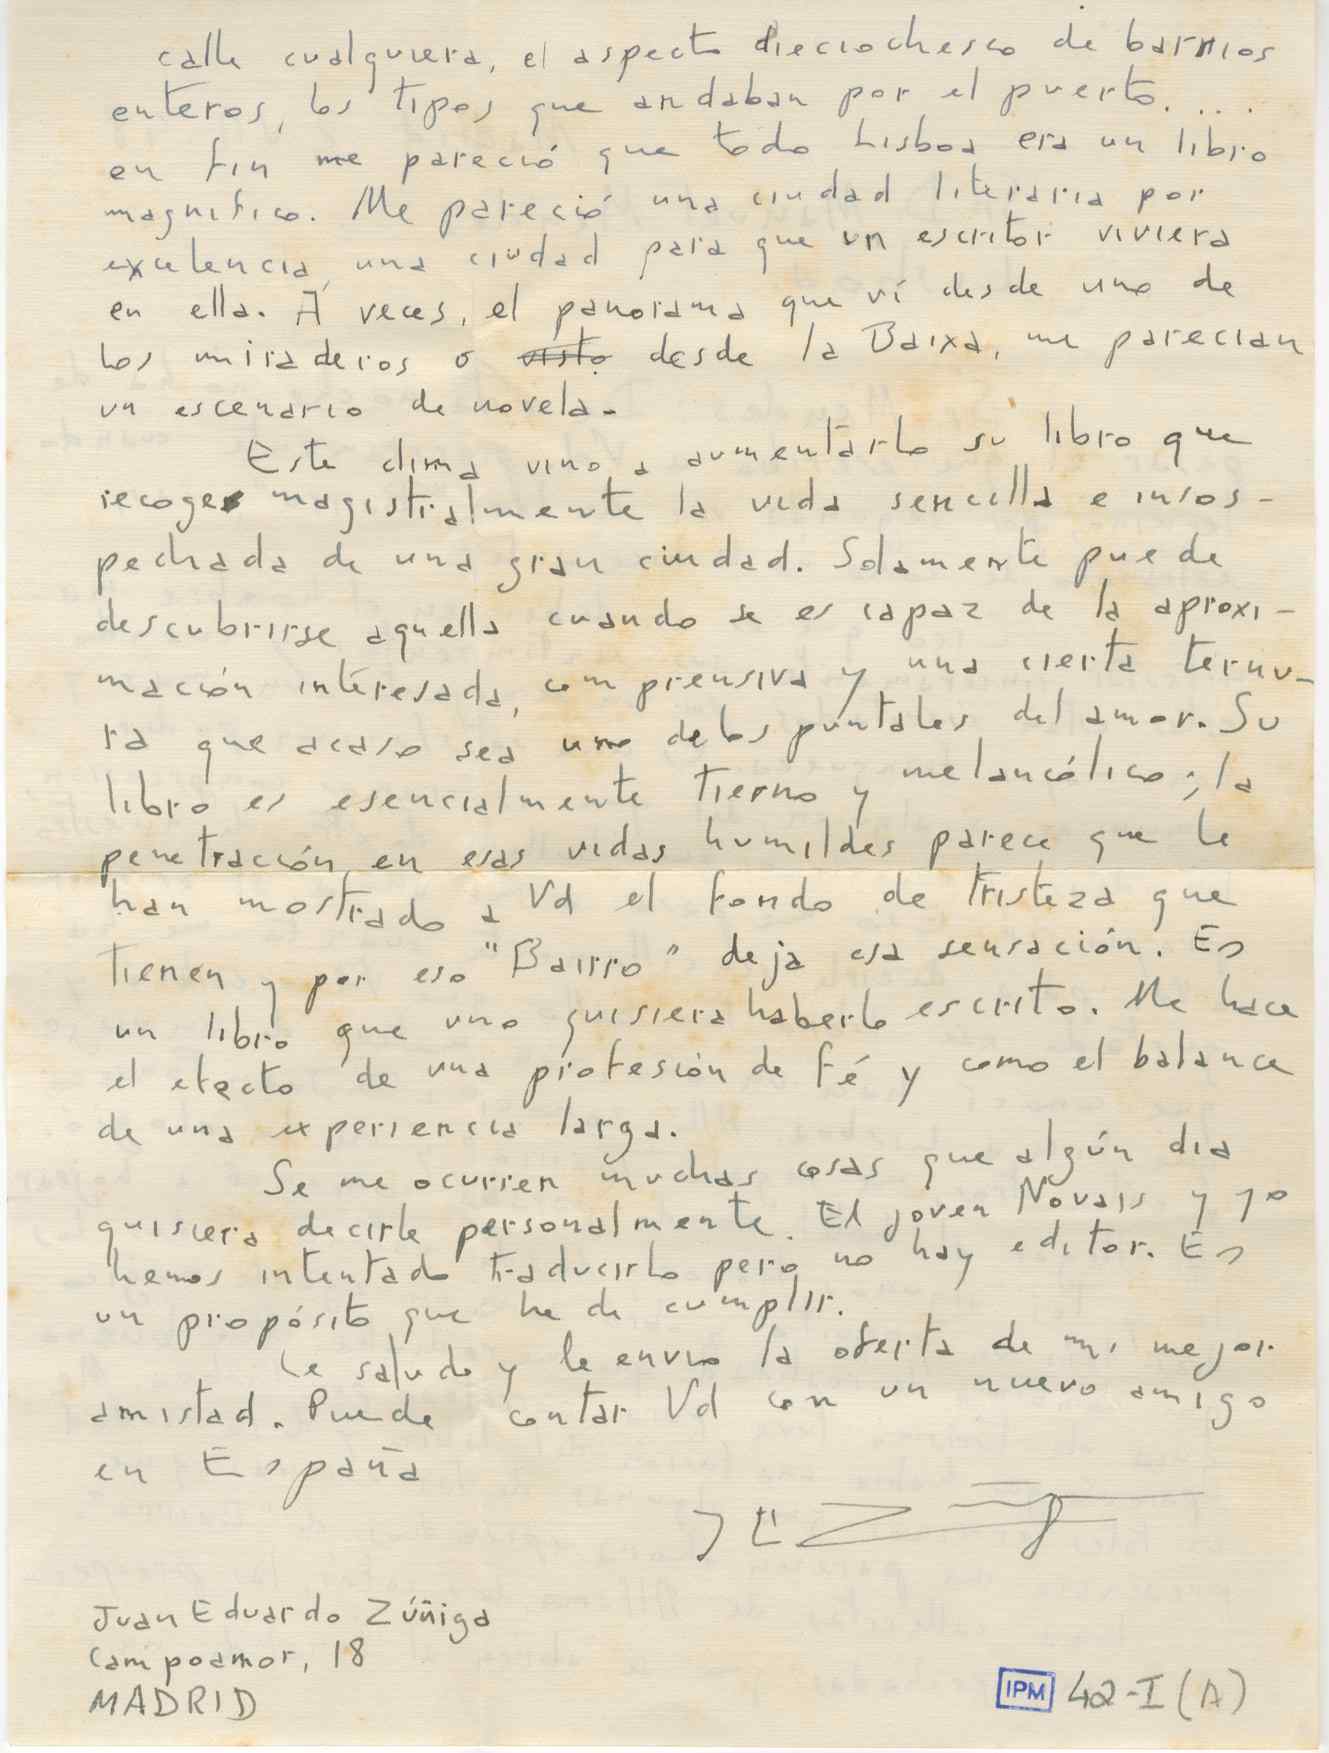 calle cualquiera, el aspecto dieciochesco de barrios
enteros, los tipos que andaban por el puerto. . . .
en fin me pareció que todo Lisboa era un libro
magnifico. Me pareció una ciudad literaria por
excelencia, una ciudad para que un escritor viviera
en ella. A veces, el panorama que ví desde uno de
los miraderos o visto desde la Baixa, me parecian
un escenario de novela.
Este clima vino a aumentarlo su libro que
recoge magistralmente la vida sencilla e insos-
pechada de una gran ciudad. Solamente puede
descubrirse aquella cuando se es capaz de la aproxi-
mación interesada, comprensiva y una cierta ternu-
ra que acaso sea uno de los puntales del amor. Su
libro es esencialmente tierno y melancólico; la
penetración en esas vidas humildes parece que le
han mostrado a Vd el fondo de tristeza que
tienen y por eso "Bairro" deja esa sensación. Es
un libro que uno quisiera haberlo escrito. Me hace
el efecto de una profesión de fé y como el balance
de una experiencia larga.
Se me ocurren muchas cosas que algún dia
quisiera decirle personalmente. El joven Novais y yo
hemos intentado traducirlo pero no hay editor. Es
un propósito que he de cumplir.
Le saludo y le envio la oferta de mi mejor
amistad. Puede contar Vd con un nuevo amigo
en España
JEZ
Juan Eduardo Zúñiga
Campoamor, 18
MADRID
IPM 42-I (A)